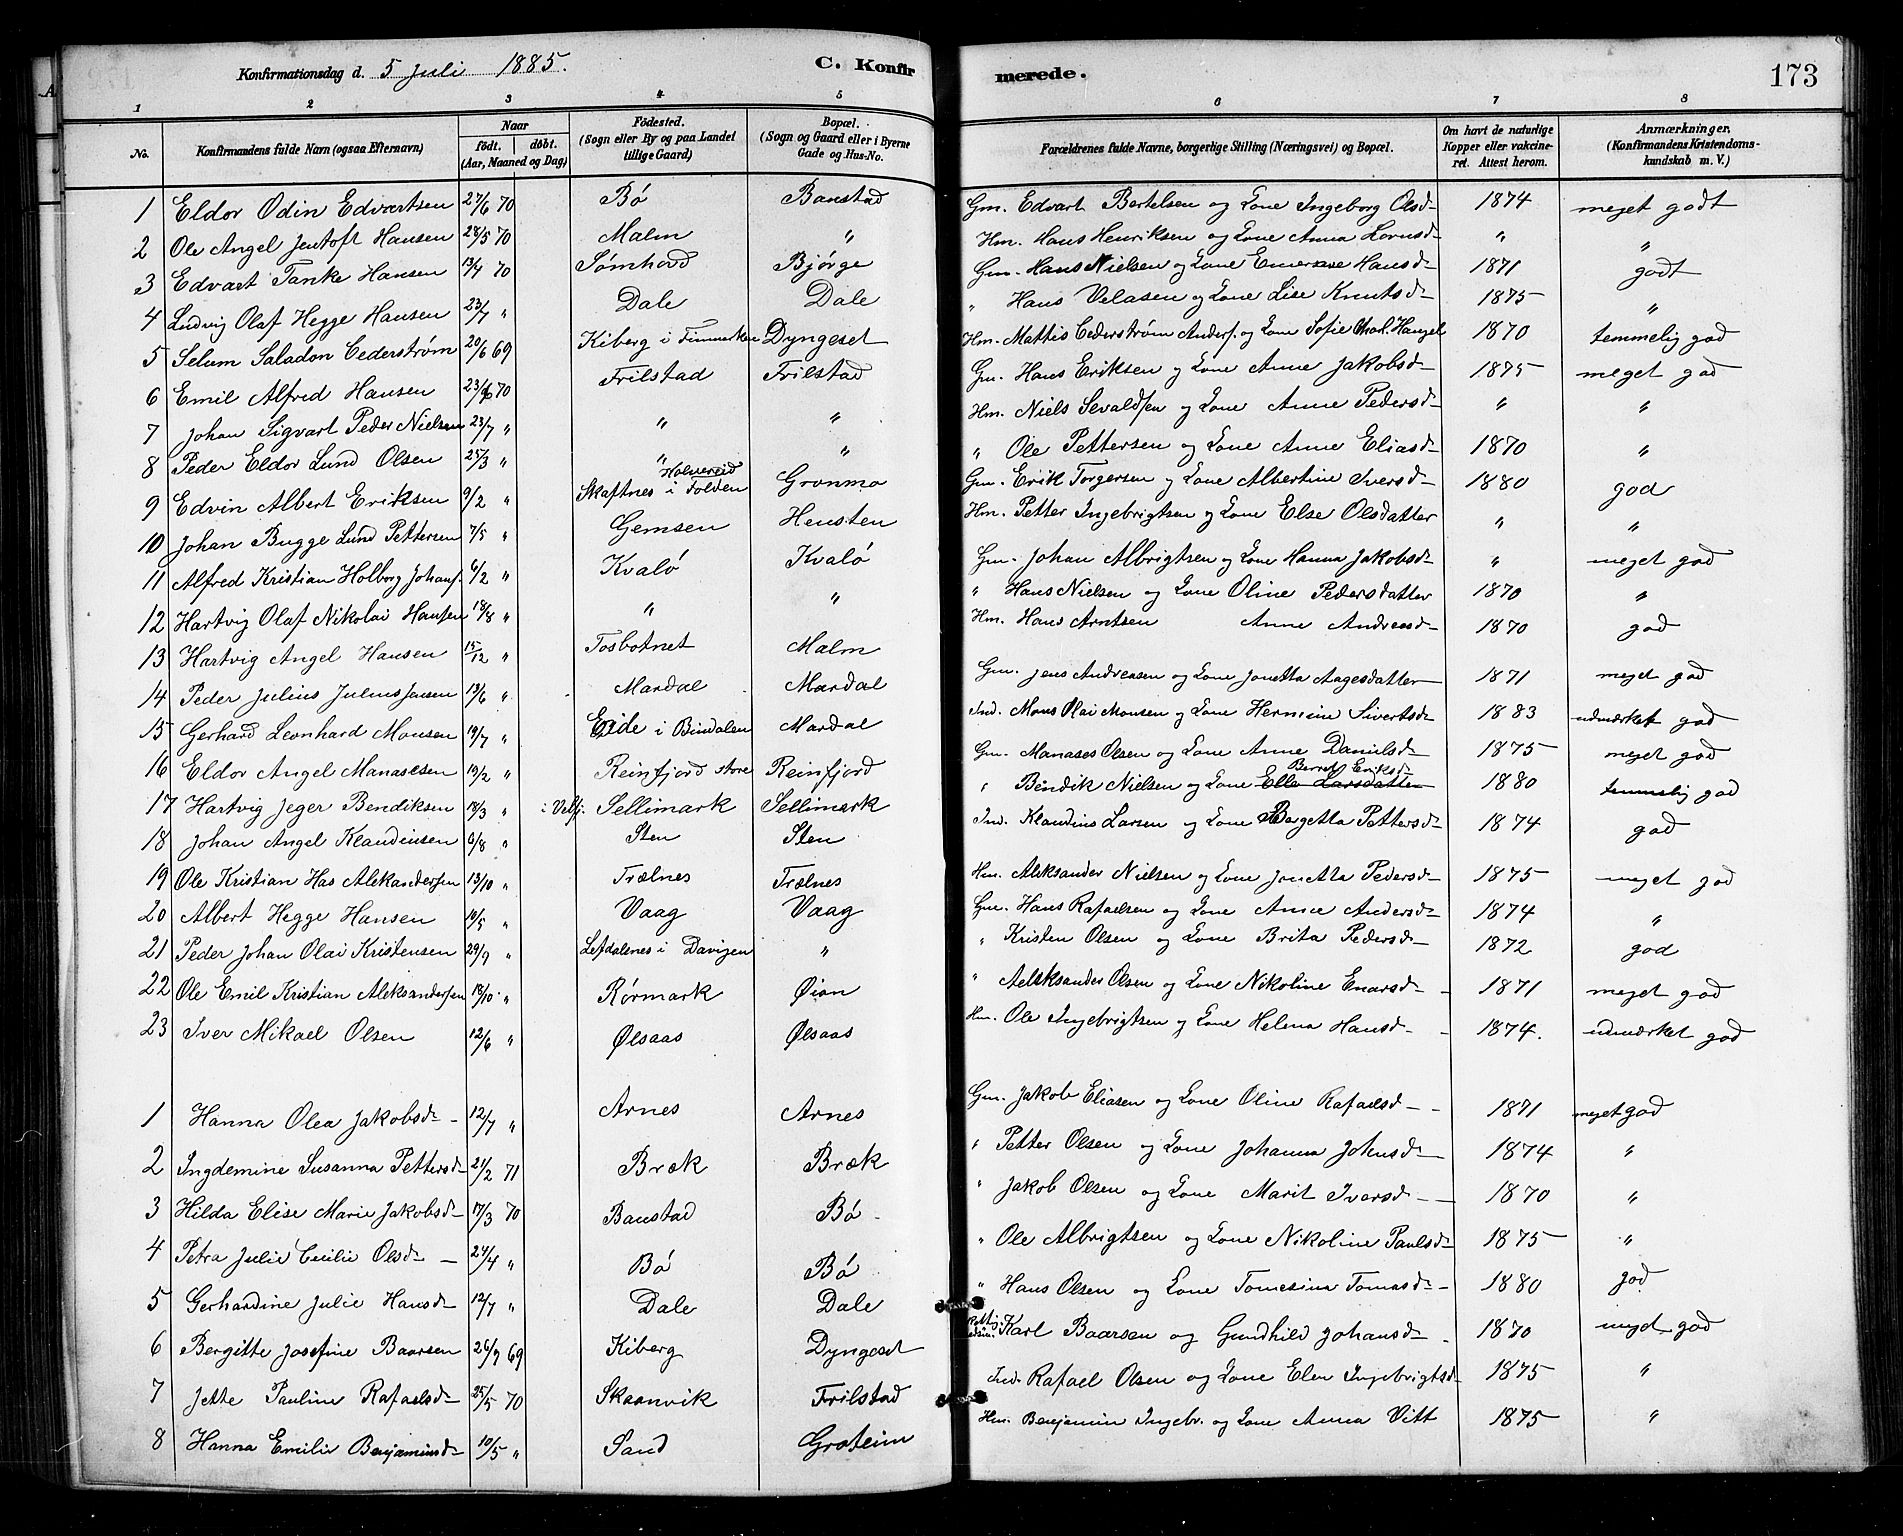 Konfirmationsdag d. 5 Juli 1885. C. Konfirmerede. 173
1 2 3 4 5 6 7 8
No. Konfirmandens fulde Navn (ogsaa Efternavn) Naar födt. döbt. (Aar, Maaned og Dag) Födested. (Sogn eller By og paa Landet tillige Gaard) Bopæl. (Sogn og Gaard eller i Byerne Gade og Hus-No. Forældrenes fulde Navne, borgerlige Stilling (Næringsvei) og Bopæl. Om havt de naturlige Kopper eller vakcineret. Attest herom. Anmærkninger. (Konfirmandens Kristendomskundskab m. V.)
1 Eldor Odin Edvartsen 27/6 70 Bö Banstad Gm. Edvart Bertelsen og Kone Ingeborg Olsd- 1874 meget godt
2 Ole Angel Jentoft Hansen 28/5 70 Malm " Hm. Hans Henriksen og Kone Anna Lornsd- " "
3 Edvart Tanke Hansen 13/7 70 Sømhovd Bjørge Gm. Hans Nielsen og Kone Hansd- 1871 godt
4 Ludvig Olaf Hegge Hansen 23/7 " Dale Dale " Hans Velasen og Kone Lise Knutsd- 1875 "
5 Selum Saladon Cederstrøm 20/6 69 Kiberg i Finmarken Dyngeset Hm. Mattis Cederstrøm Anders. og Kone Sofie Hangel 1870 temmelig god
6 Emil Alfred Hansen 23/6 70 Frilstad Frilstad Gm. Hans Eriksen og Kone Anne Jakobsd- 1875 meget god
7 Johan Sigvart Peder Nielsen 23/7 " " " Hm. Niels Sevaldsen og Kone Anne Pedersd- " "
8 Peder Eldor Lund Olsen 25/3 " " " " Ole Pettersen og Kone Anne Eliasd- 1870 "
9 Edvin Albert Eriksen 9/2 " Skaftnes i Folden Grønmo Gm. Erik Torgersen og Kone Albertine Iversd- 1880 god
10 Johan Bugge Lund Pettersen 7/5 " Gemsen Hensten Hm. Petter Ingebrigtsen og Kone Else Olsdatter " "
11 Alfred Kristian Holborg Johans. 6/2 " Kvalö Kvalö Gm. Johan Albrigtsen og Kone Hanna Jakobsd- " meget god
12 Hartvig Olaf Nikolai Hansen 18/8 " " " " Hans Nielsen og Kone Oline Pedersdatter 1870 "
13 Hartvig Angel Hansen 15/12 " Tosbotnet Malm Hm. Hans Arntsen Anne Andreasd- 1870 god
14 Peder Julius Julius Jensen 13/6 " Mardal Mardal Gm. Jens Andreasen og Kone Jonetta Aagesdatter 1871 meget god
15 Gerhard Leonhard Monsen 19/7 " Eide i Bindalen Mardal Ind. Mons Olai Monsen og Kone Hermine Sivertsd- 1883 udmærket god
16 Eldor Angel Manasesen 19/2 " Reinfjord store Reinfjord Gm. Manases Olsen og Kone Anne Danielsd- 1875 meget god
17 Hartvig Jeger Bendiksen 18/3 " i Velfj. Sellimark Sellimark " Bendik Nielsen og Kone Elle Larsdatter Berret Eriksd- 1880 temmelig god
18 Johan Angel Klaudiusen 6/8 " Sten Sten Ind. Klaudius Larsen og Kone Bergetta Pettersd- 1874 god
19 Ole Kristian Has Aleksandersen 13/10 " Trælnes Trælnes Hm. Aleksander Nielsen og Kone Jonetta Pedersd- 1875 meget god
20 Albert Hegge Hansen 10/5 " Vaag Vaag Gm. Hans Rafaelsen og Kone Anne Andersd- 1874 "
21 Peder Johan Olai Kristensen 29/9 " Lefdalenes i Davigen " " Kristen Olsen og Kone Brita Pedersd- 1872 god
22 Ole Emil Kristian Aleksandersen 18/10 " Rørmark Øian " Aelsksander Olsen og Kone Nikoline Enarsd- 1871 meget god
23 Iver Mikael Olsen 12/6 " Ølsaas Ølsaas Hm. Ole Ingebrigtsen og Kone Helena Hansd- 1874. udmærket god
1 Hanna Olea Jakobsd- 12/7 " Arnes Arnes Gm. Jakob Eliasen og Kone Oline Rafaelsd- 1871 meget god
2 Ingdemine Susanna Pettersd- 21/2 71 Bræk Bræk " Petter Olsen og Kone Johanna Johnsd- 1874 "
3 Hilda Elise Marie Jakobsd- 17/3 70 Banstad Bö " Jakob Olsen og Kone Marit Iversd- 1870 "
4 Petra Julie Cecilie Olsd- 24/4 " Bö Bö " Ole Albrigtsen og Kone Nikoline Paulsd- 1875 "
5 Gerhardine Julie Hansd- 12/7 " Dale Dale " Hans Olsen og Kone Tomesina Tomasd- 1880 god
6 Bergitte Josefine Baarsen 26/7 69 Kiberg Dyngeset Karl Baarsen og Gundhild Johansd- 1870 meget god
7 Jette Pauline Rafaelsd- 25/5 70 Skaanvik Frilstad Ind. Rafael Olsen og Kone Elen Ingebrigtsd- 1875 "
8 Hanna Emilie Benjaminsd- 10/5 " Sand Groteim Hm. Benjamin Ingebr. og Kone Anna Vitt 1875 "